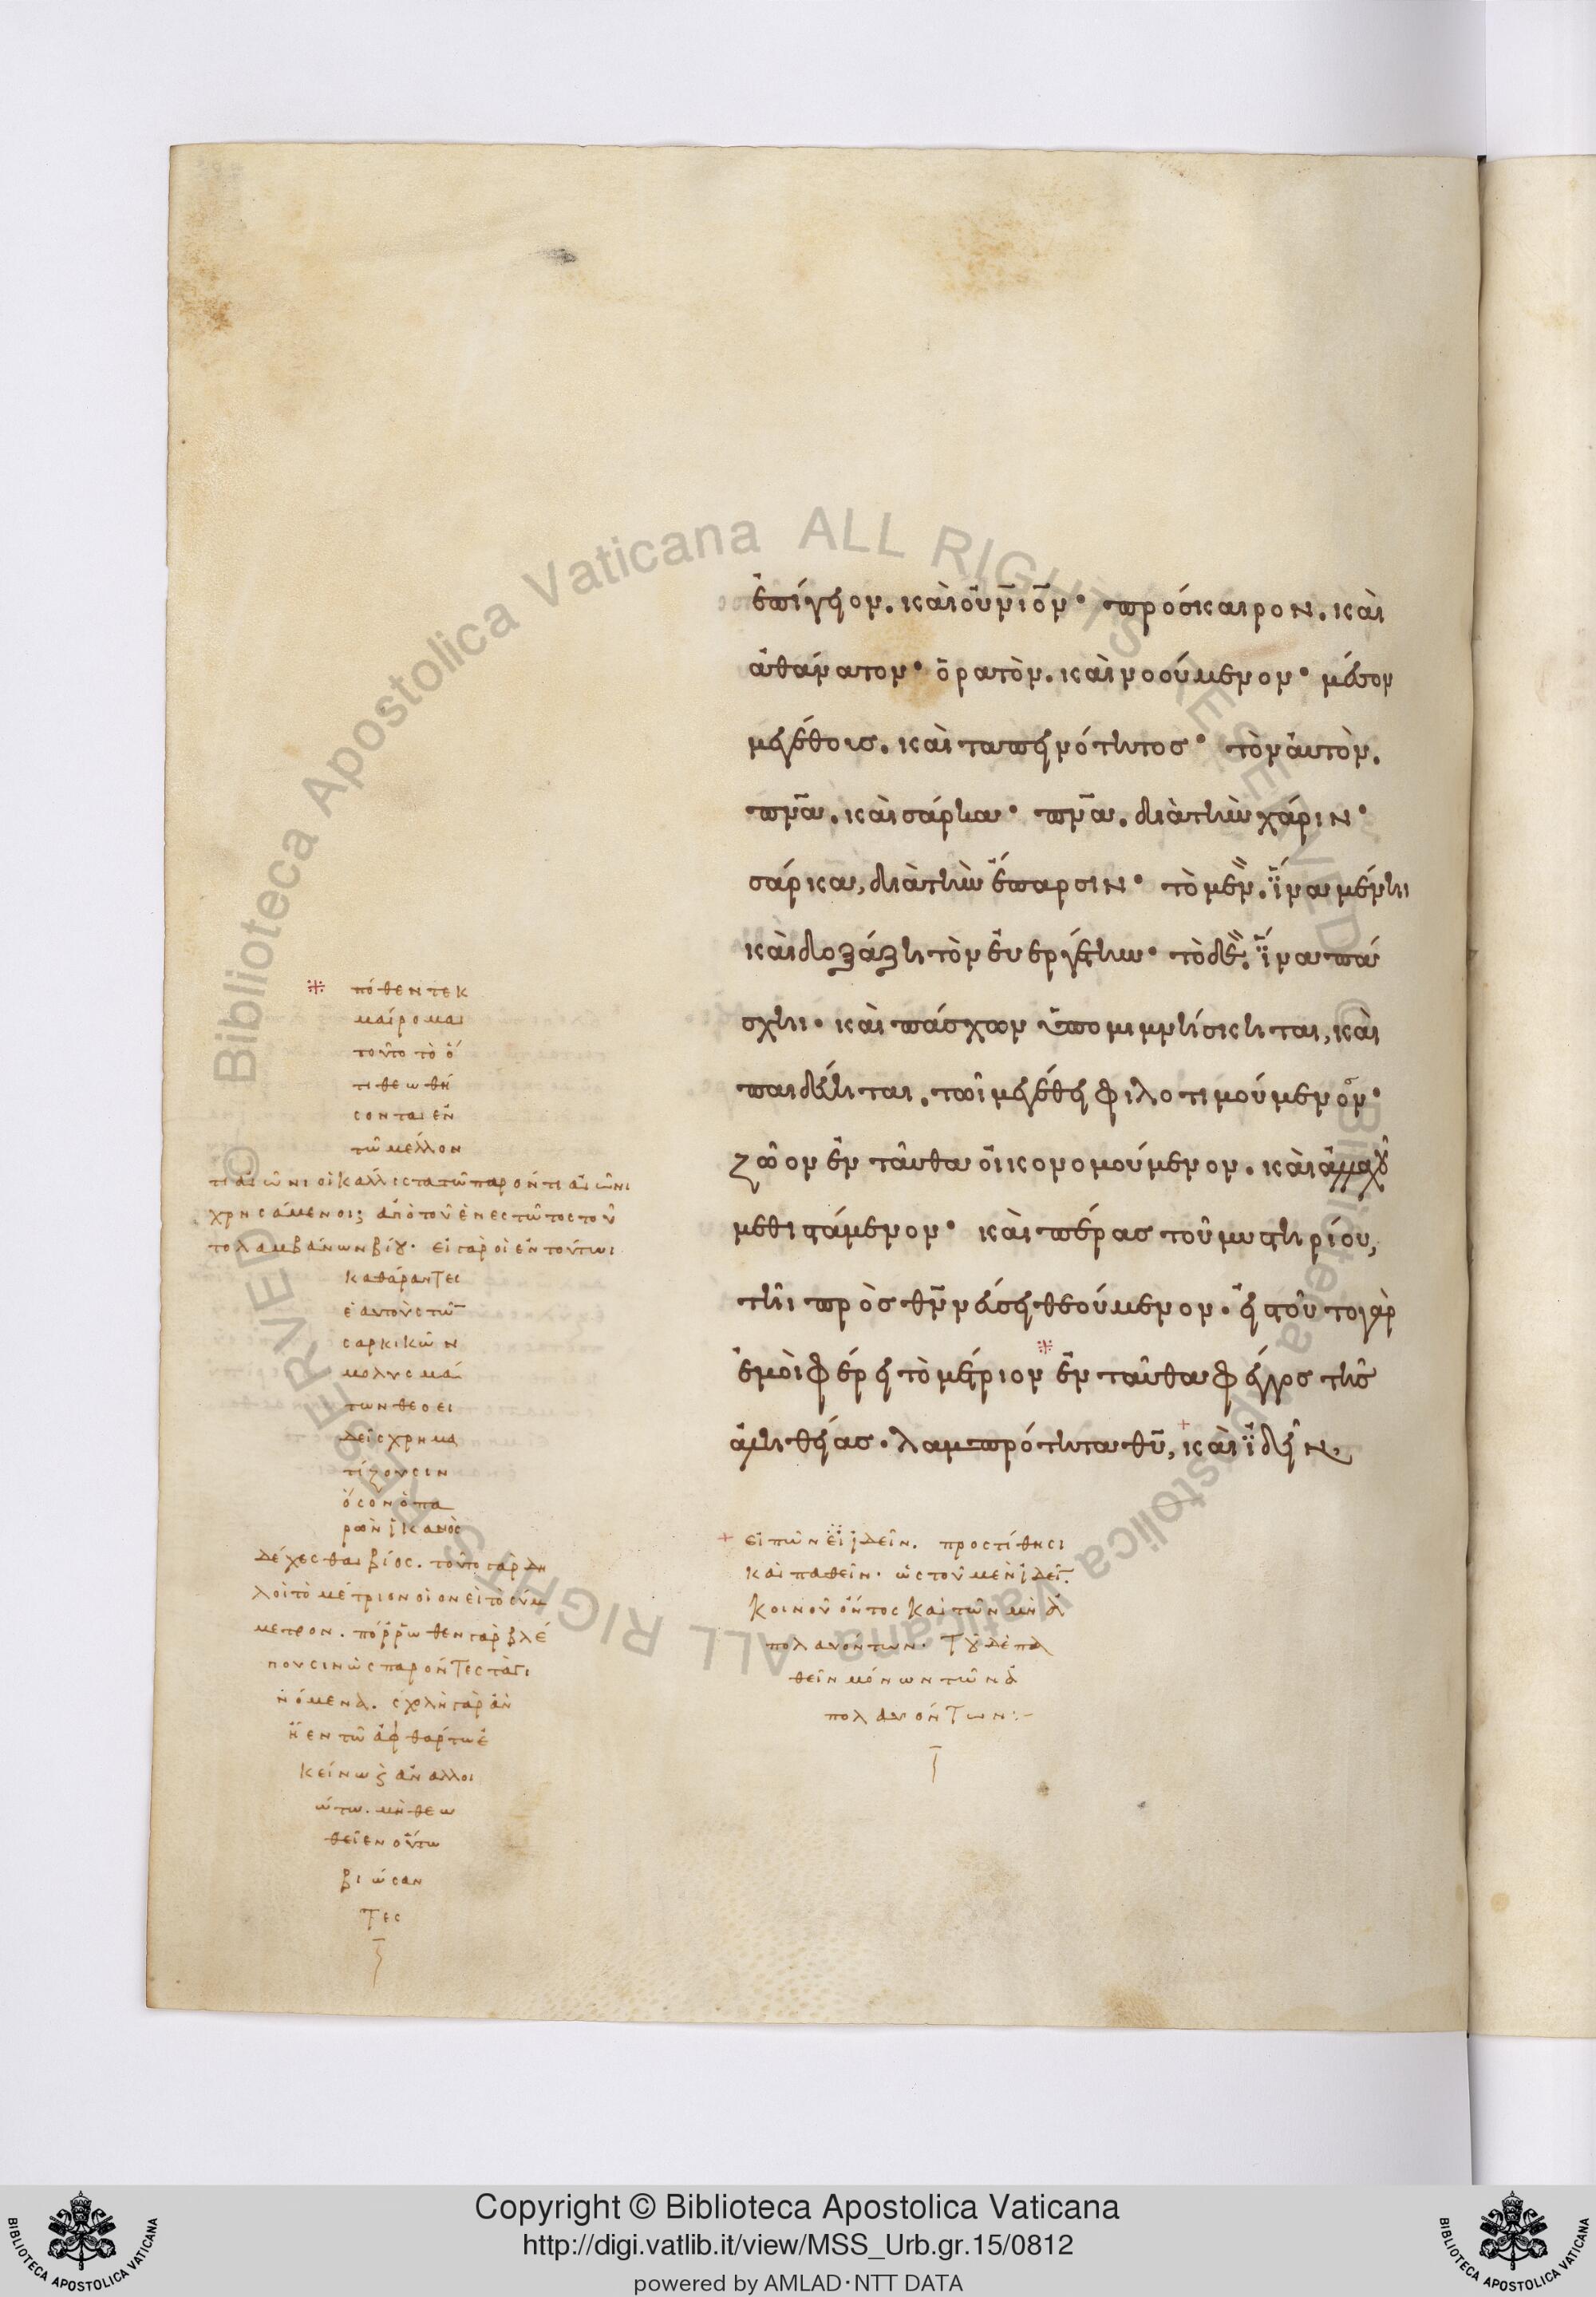 ἐπίγειον. καὶ οὐ̅ν̅ιον· πρόσκαιρον. καὶ
ἀθάνατον· ὁρατὸν. καὶ νοούμενον· μέσον
μεγέθους. καὶ ταπεινότητος· τὸν αὐτὸν.
πν̅α. καὶ σάρκα· πν̅α. διὰ τὴν χάριν·
σάρκα, διὰ τὴν ἔπαρσιν· τὸ μὲν. ἵνα μένηι
καὶ δοξάζηι τὸν εὐεργέτην· τὸ δὲ. ἵνα πά
σχηι· καὶ πάσχων ὑπομιμνήσκηται, καὶ
παιδεύηται. τῶι μεγέθει φιλοτιμούμενον·
ζῶον ἐνταῦθα οἰκονομούμενον. καὶ ἀλλαχοῦ
μεθιστάμενον· καὶ πέρας τοῦ μυστηρίου,
τῆι πρὸς θν̅ νεύσει θεούμενον· εἰς τοῦτο γὰρ
ἐμοὶ φέρει τὸ μέτριον ἐνταῦθα φέγγος τῆς
ἀληθείας. λαμπρότητα θυ̅, καὶ ἰδεῖν.
πόθεν τεκ
μαίρομαι
τοῦτο τὸ ὅ
τι θεωθή
σονται ἐν
τῶ μέλλον
τι αἰῶνι οἱ κάλλιστα τῶ παρόντι αἰῶνι
χρησάμενοι; ἀπὸ τοῦ ἐνεστῶτος τοῦ
το λαμβάνων βίου. εἰ γὰρ οἱ ἐν τούτωι
καθάραντες
ἑαυτοὺς τῶ̅
σαρκικῶν
μολυσμά
των θεοει
δεῖς χρημα
τίζουσιν
ὅσον ὁ πα
ρὼν ἱκανὸς
δέχεσθαι βίος. τοῦτο γὰρ δη
λοῖ τὸ μέτριον οἱονεὶ τὸ σύμ
μετρον. πόρρωθεν γὰρ βλέ
πουσιν ὡς παρόντες τὰ γι
νόμενα. σχολὴ γὰρ ἂν
ἢ ἐν τῶ ἀφθάρτω ἐ
κείνω καὶ ἀναλλοι
ώτω. μὴ θεω
θεῖεν οὕτω
βιώσαν
τες
εἰπὼν ἰδεῖν. προστίθησι
καὶ παθεῖν. ὡς τοῦ μὲν ἰδεῖ̅.
κοινοῦ ὄντος καὶ τῶν μὴ ἀ
πολαυόντων. τοῦ δὲ πα
θεῖν μόνων τῶν ἀ
πολαυόντων:-
Copyright © Biblioteca Apostolica Vaticana
http://digi.vatlib.it/view/MSS_Urb.gr.15/0812
powered by AMLAD·NTT DATA
BIBLIOTECA APOSTOLICA VATICANA
BIBLIOTECA APOSTOLICA VATICANA
© Biblioteca Apostolica Vaticana ALL RIGHTS RESERVED © Biblioteca Apostolica Vaticana ALL RIGHTS RESERVED